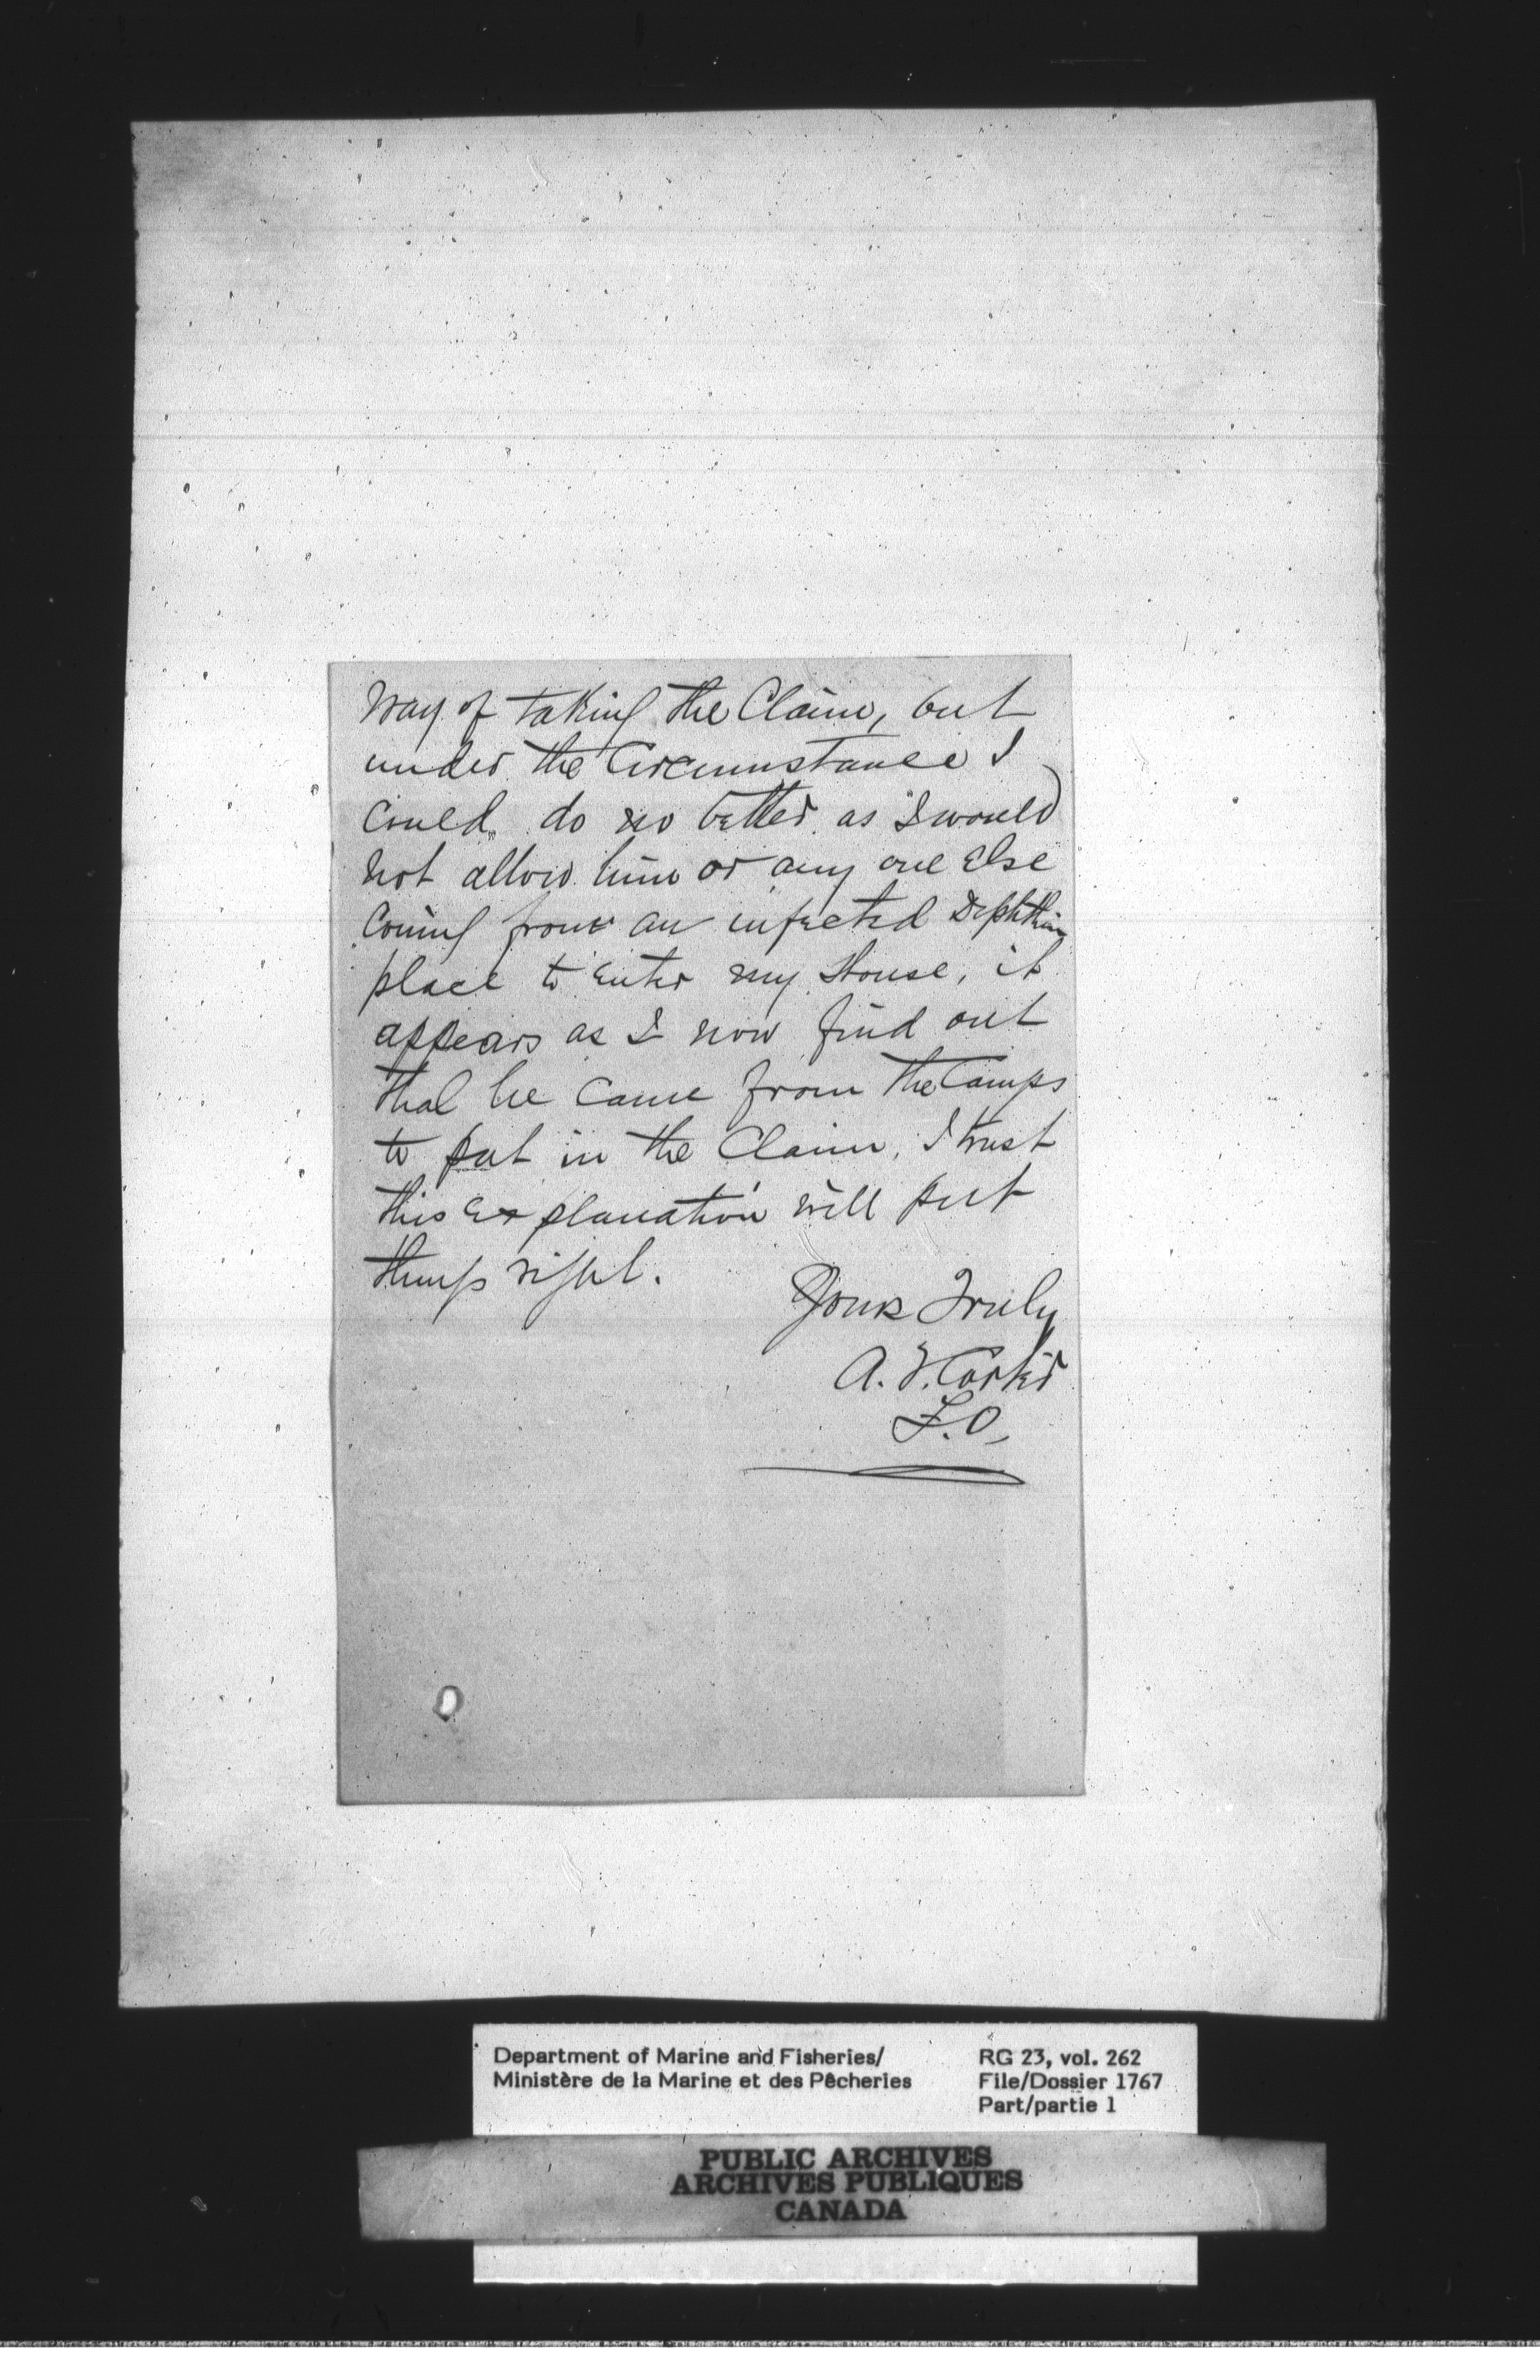 way of taking the Claim, but
under the Circumstance I
Could do no better as I would
not allow him or any one Else
Coming from an infected Diphtheria
place to Enter my House, it
appears as I now find out
that he Came from the Camps
to put in the Claim, I trust
this Explanation will put
things right.
Yours Truly
A. F. Carter
F.O.
Department of Marine and Fisheries/
Ministère de la Marine et des Pêcheries
RG 23, vol. 262
File/Dossier 1767
Part/partie 1
PUBLIC ARCHIVES
ARCHIVES PUBLIQUES
CANADA